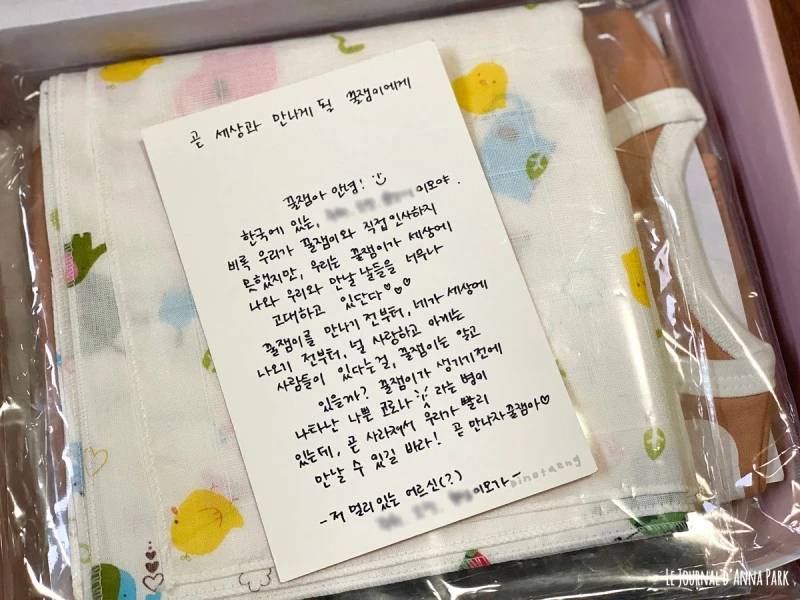 곧 세상과 만나게 될 꿀잼이에게
꿀잼아 안녕!
한국에 있는, 이모야.
비록 우리가 꿀잼이와 직접 인사하지
못했지만, 우리는 꿀잼이가 세상에
나와 우리와 만날 날들을 너무나
고대하고 있단다♡♡♡
꿀잼이를 만나기 전부터, 네가 세상에
나오기 전부터, 널 사랑하고 아끼는
사람들이 있다는걸, 꿀잼이는 알고
있을까? 꿀잼이가 생기기 전에
나타난 나쁜 코로나 라는 병이
있는데, 곧 사라져서 우리가 빨리
만날 수 있길 바라! 곧 만나자 꿀잼아♡
-저 멀리 있는 어르신(?)
이모가-
dinotaeng
Le Journal d'Anna Park